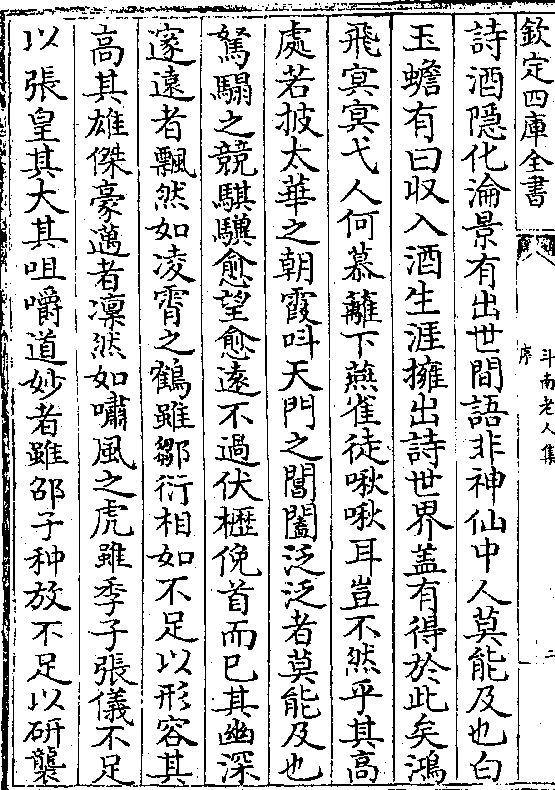 欽定四庫全書
斗南老人集
序
二
詩酒隱化淪景有出世間語非神仙中人莫能及也白
玉蟾有曰収入酒生涯擁出詩世界盖有得於此矣鴻
飛冥冥弋人何慕籬下燕雀徒啾啾耳豈不然乎其高
處若披太華之朝霞叫天門之閶闔泛泛者莫能及也
駑騸之競騏驥愈望愈遠不過伏櫪俛首而已其幽深
邃遠者飄然如凌霄之鶴雖鄒衍相如不足以形容其
高其雄傑豪邁者凜然如嘯風之虎雖季子張儀不足
以張皇其大其咀嚼道妙者雖邵子种放不足以研襲